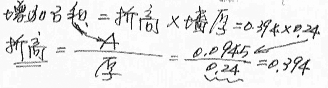 增加面积=折高×墙厚=0.394×0.24
折高=A/厚=0.0945/0.24=0.394